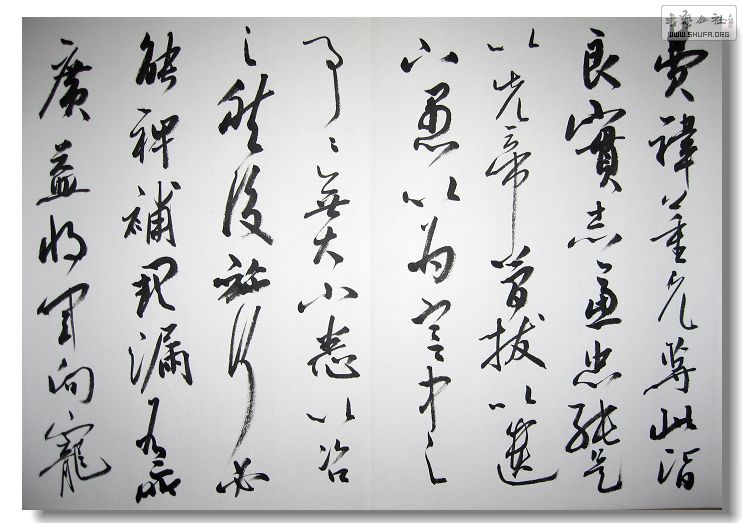 費禕董允等此皆
良實志慮忠純是
以先帝簡拔以遺
下愚以为宮中之
事〻無大小悉以咨
之然後施行必
能裨補闕漏有所
廣益將軍向寵
WWW.SHUFA.ORG